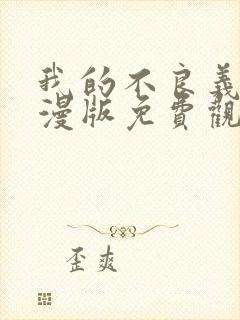 我的不良義
漫版免費觀
歪爽